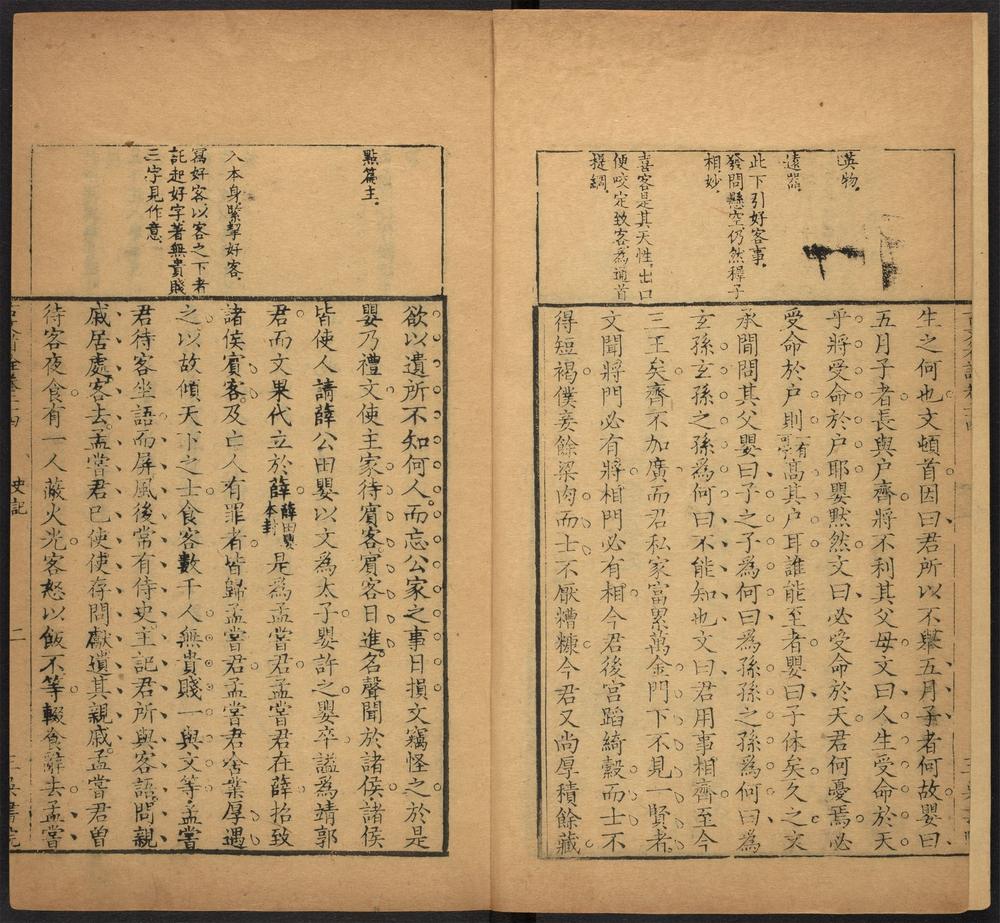 英物.
遠器.
此下引好客事.
發問懸空仍然稺子
相妙.
喜客是其天性.出口
便咬定致客為通首
提綱.
生之何也文頓首因曰君所以不舉五月子者何故嬰曰
五月子者長與户齊將不利其父母文曰人生受命於天
乎將受命於户耶嬰默然文曰必受命於天君何憂焉必
受命於户則高其户耳誰能至者嬰曰子休矣久之文
承間問其父嬰曰子之子為何曰為孫孫之孫為何曰為
玄孫玄孫之孫為何曰不能知也文曰君用事相齊至今
三王矣齊不加廣而君私家富累萬金門下不見一賢者
文聞將門必有將相門必有相今君後宫蹈綺縠而士不
得短褐僕妾餘粱肉而士不厭糟糠今君又尚厚積餘藏
點篇主.
入本身.緊挈好客.
寫好客以客之下者
託起好字.著無貴賤
三字見作意.
欲以遺所不知何人而忘公家之事日損文竊怪之於是
嬰乃禮文使主家待賓客賓客日進名聲聞於諸侯諸侯
皆使人請薛公田嬰以文為太子嬰許之嬰卒謚為靖郭
君而文果代立於薛薛田嬰本封是為孟嘗君孟嘗君在薛招致
諸侯賓客及亡人有罪者皆歸孟嘗君孟嘗君舍業厚遇
之以故傾天下之士食客數千人無貴賤一與文等孟嘗
君待客坐語而屏風後常有侍史主記君所與客語問親
戚居處客去孟嘗君已使使存問獻遺其親戚孟嘗君曾
待客夜食有一人蔽火光客怒以飯不等輟食辭去孟嘗
史記
二